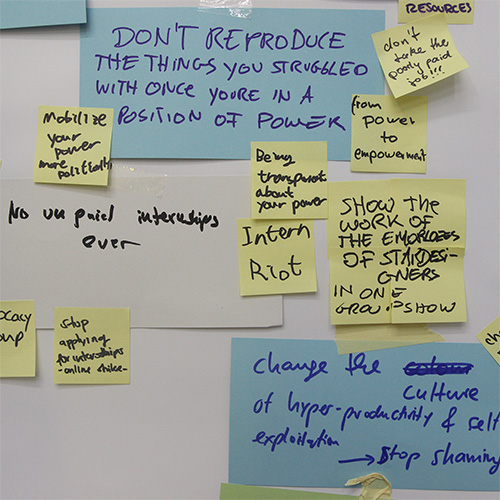 RESOURCES
DON'T REPRODUCE
THE THINGS YOU STRUGGLED
WITH ONCE YOURE IN A
POSITION OF POWER
don't
take the
poorly paid
job!!!
Mobilize
your
power
more politically
from
power
to
empowerment
Being
transparent
about
your power
No un paid internships
ever
Intern
Riot
SHOW THE
WORK OF
THE EMPLOEES
OF STARDESI-
GNERS
IN ONE
GROUPSHOW
ocacy
oup
stop
applying
for internships
-online strike-
change the
culture
of hyper-productivity & self
exploitation
→ Stop shaming